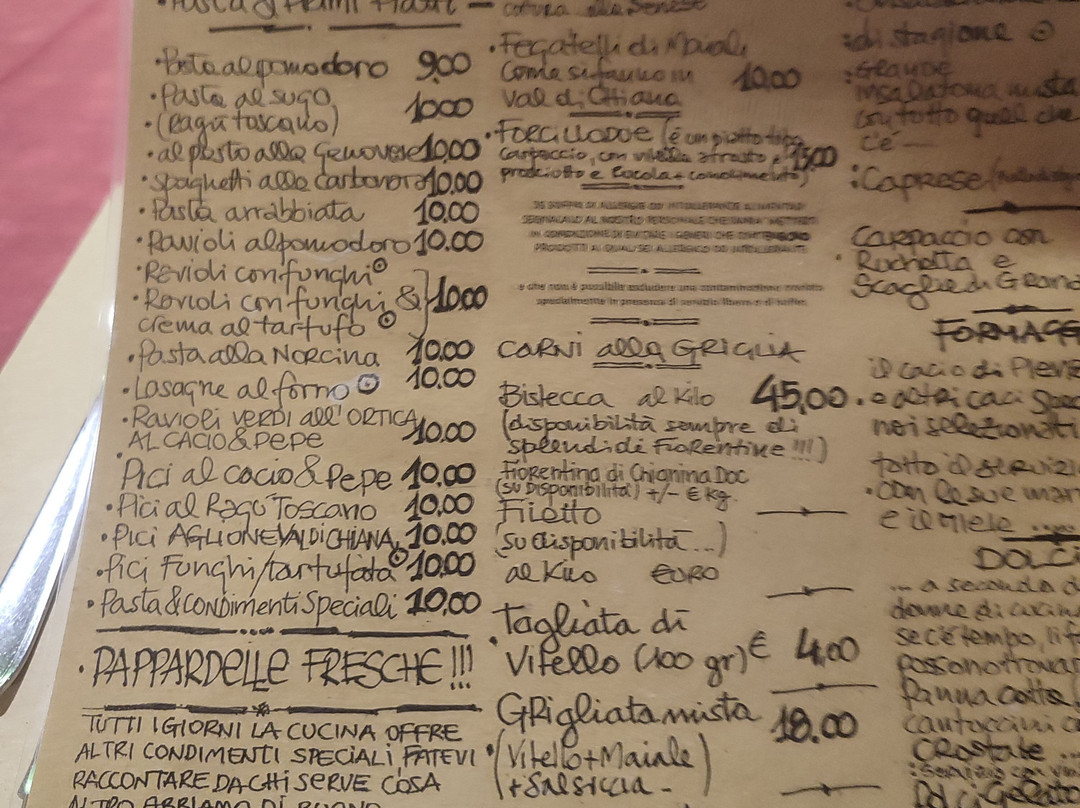 Pasta & Primi Piatti
• Pasta al pomodoro 9,00
• Pasta al sugo
• (Ragù toscano) 10,00
• al pesto alla Genovese 10,00
• Spaghetti alla Carbonara 10.00
• Pasta arrabbiata 10.00
• Ravioli al pomodoro 10.00
• Ravioli con funghi
• Ravioli con funghi & 10.00
crema al tartufo
• Pasta alla Norcina 10.00
• Lasagne al forno 10.00
• Ravioli VERDI all'ORTICA
AL CACIO & PEPE 10.00
Pici al Cacio & Pepe 10.00
• Pici al Ragù Toscano 10.00
• Pici AGLIONE VALDICHIANA 10.00
• Pici Funghi/tartufata 10.00
• Pasta & condimenti Speciali 10.00
• PAPPARDELLE FRESCHE!!!
TUTTI I GIORNI LA CUCINA OFFRE
ALTRI CONDIMENTI SPECIALI FATEVI
RACCONTARE DA CHI SERVE COSA
ALTRO ABBIAMO DI BUONO
cottura alla Senese
• Fegatelli di Maiale
Come si fanno in 10,00
Val di Chiana
• FORCILLADOE (è un piatto tipo
carpaccio, con vitella arrosto e 13,00
prosciutto e Rucola + condimento)
SE SOFFRI DI ALLERGIE OD INTOLLERANZE ALIMENTARI
SEGNALALO AL NOSTRO PERSONALE CHE SARÀ MESSO
IN CONDIZIONE DI EVITARE I GENERI CHE CONTENGONO
PRODOTTI AI QUALI SEI ALLERGICO OD INTOLLERANTE
e che non è possibile escludere una contaminazione crociata
specialmente in presenza di servizio libero o di buffet
CARNI alla GRIGLIA
Bistecca al Kilo 45,00
(disponibilità sempre di
splendidi Fiorentine !!!)
Fiorentina di Chianina Doc
(SU DISPONIBILITÀ) +/- € kg.
Filetto
(su disponibilità...)
al Kilo EURO
• Tagliata di
Vitello (100 gr) € 4,00
Grigliata mista 18.00
• (Vitello + Maiale
+ Salsiccia -
di stagione
: Grande
insalatona mista
con tutto quel che
c'è -
: Caprese
Carpaccio con
• Ruchetta e
Scaglie di Grana
FORMAGG
il cacio di Pien
• e altri caci
noi selezionati
tutto il servizi
• con le sue mar
e il Miele ....
DOLCI
... a seconda d
donne di cucin
se c'è tempo, li f
possono trovar
Panna cotta (
cantuccini
Crostate ...